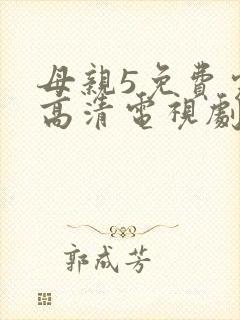 母親5免費
高清電視劇
郭成芳